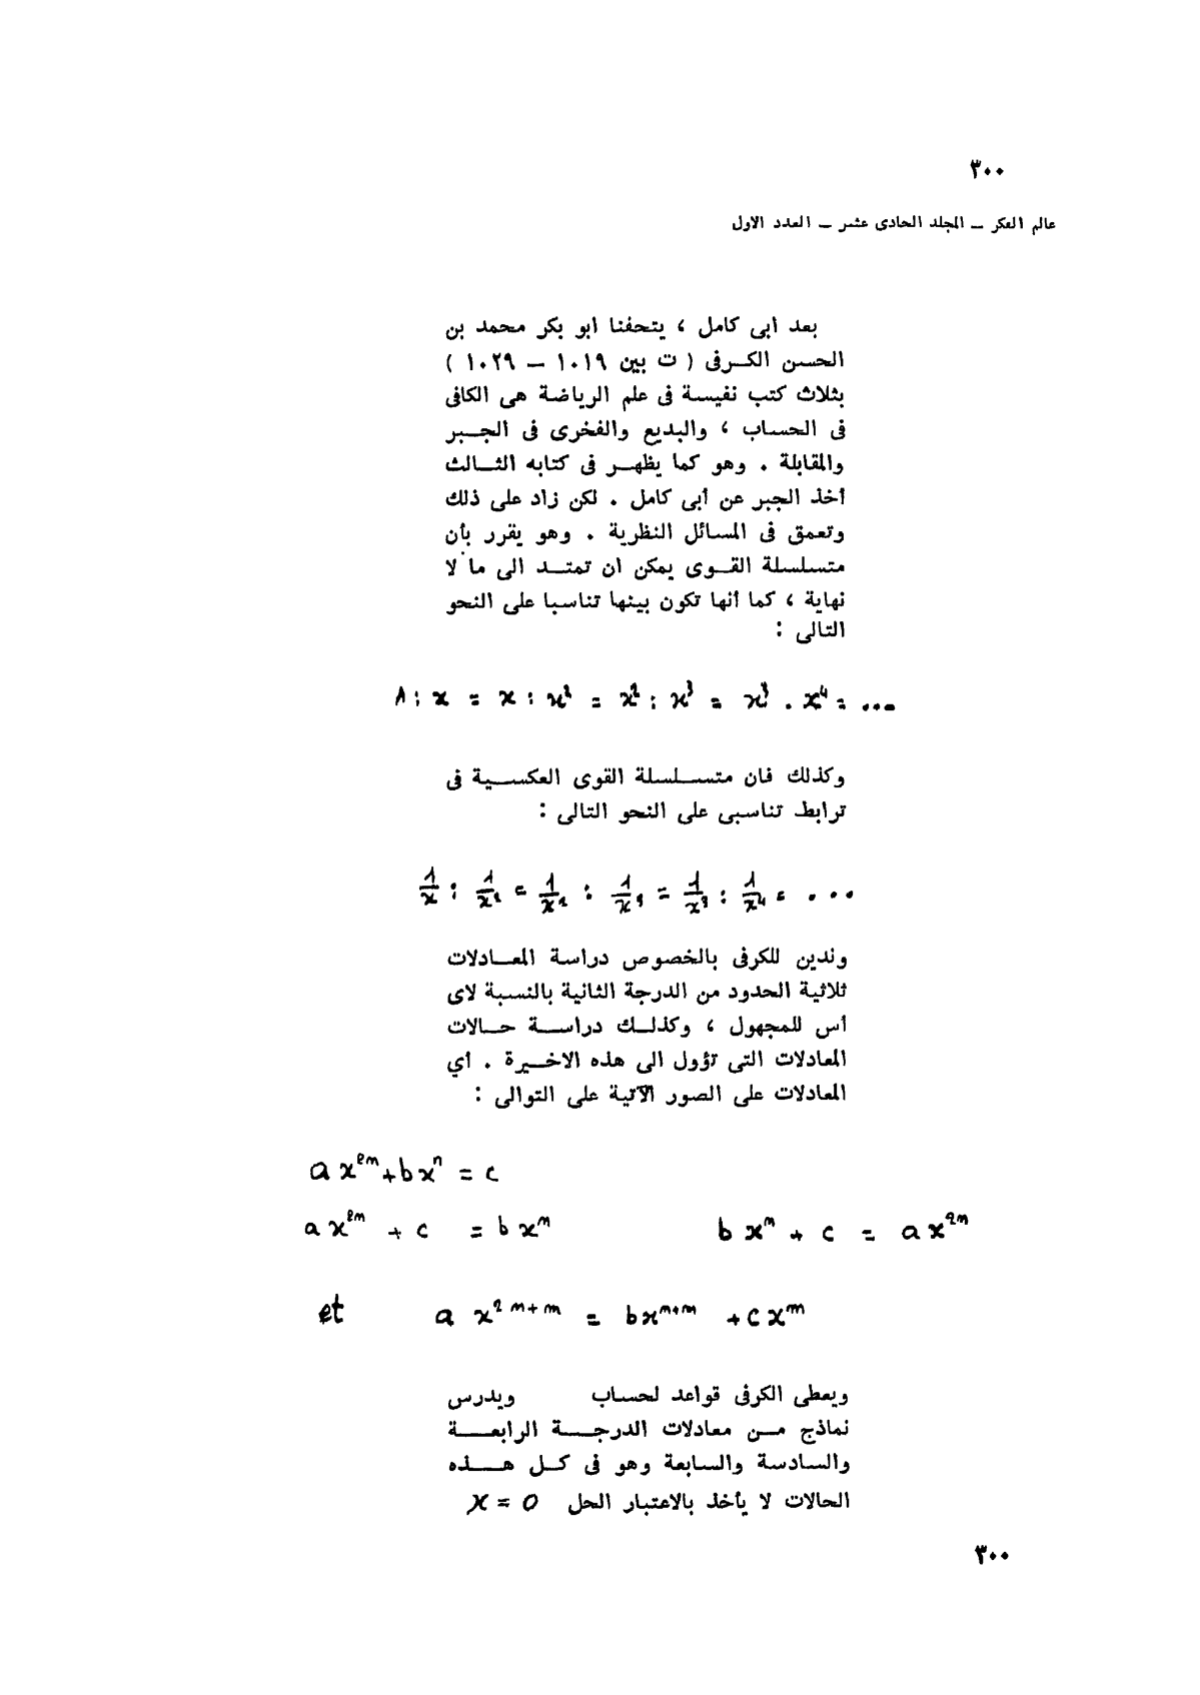 ٣٠٠
عالم الفكر ــ المجلد الحادى عشر ــ العدد الاول
بعد ابى كامل ، يتحفنا ابو بكر محمد بن
الحسن الكرفى ( ت بين ١٠١٩ ــ ١٠٢٩ )
بثلاث كتب نفيسة فى علم الرياضة هى الكافى
فى الحساب ، والبديع والفخرى فى الجبر
والمقابلة . وهو كما يظهر فى كتابه الثالث
أخذ الجبر عن أبى كامل . لكن زاد على ذلك
وتعمق فى المسائل النظرية . وهو يقرر بأن
متسلسلة القوى يمكن ان تمتد الى ما لا
نهاية ، كما أنها تكون بينها تناسبا على النحو
التالى :
1 : x = x : x² = x² : x³ = x³ . x⁴ = ...
وكذلك فان متسلسلة القوى العكسية فى
ترابط تناسبى على النحو التالى :
1/x : 1/x² = 1/x² : 1/x³ = 1/x³ : 1/x⁴ = ...
وندين للكرفى بالخصوص دراسة المعادلات
ثلاثية الحدود من الدرجة الثانية بالنسبة لاى
أس للمجهول ، وكذلك دراسة حالات
المعادلات التى تؤول الى هذه الاخيرة . أي
المعادلات على الصور الآتية على التوالى :
a x^2m + b x^n = c
a x^2m + c = b x^m b x^m + c = a x^2m
et a x^2m+m = b x^m+m + c x^m
ويعطى الكرفى قواعد لحساب ويدرس
نماذج من معادلات الدرجة الرابعة
والسادسة والسابعة وهو فى كل هذه
الحالات لا يأخذ بالاعتبار الحل x = 0
٣٠٠